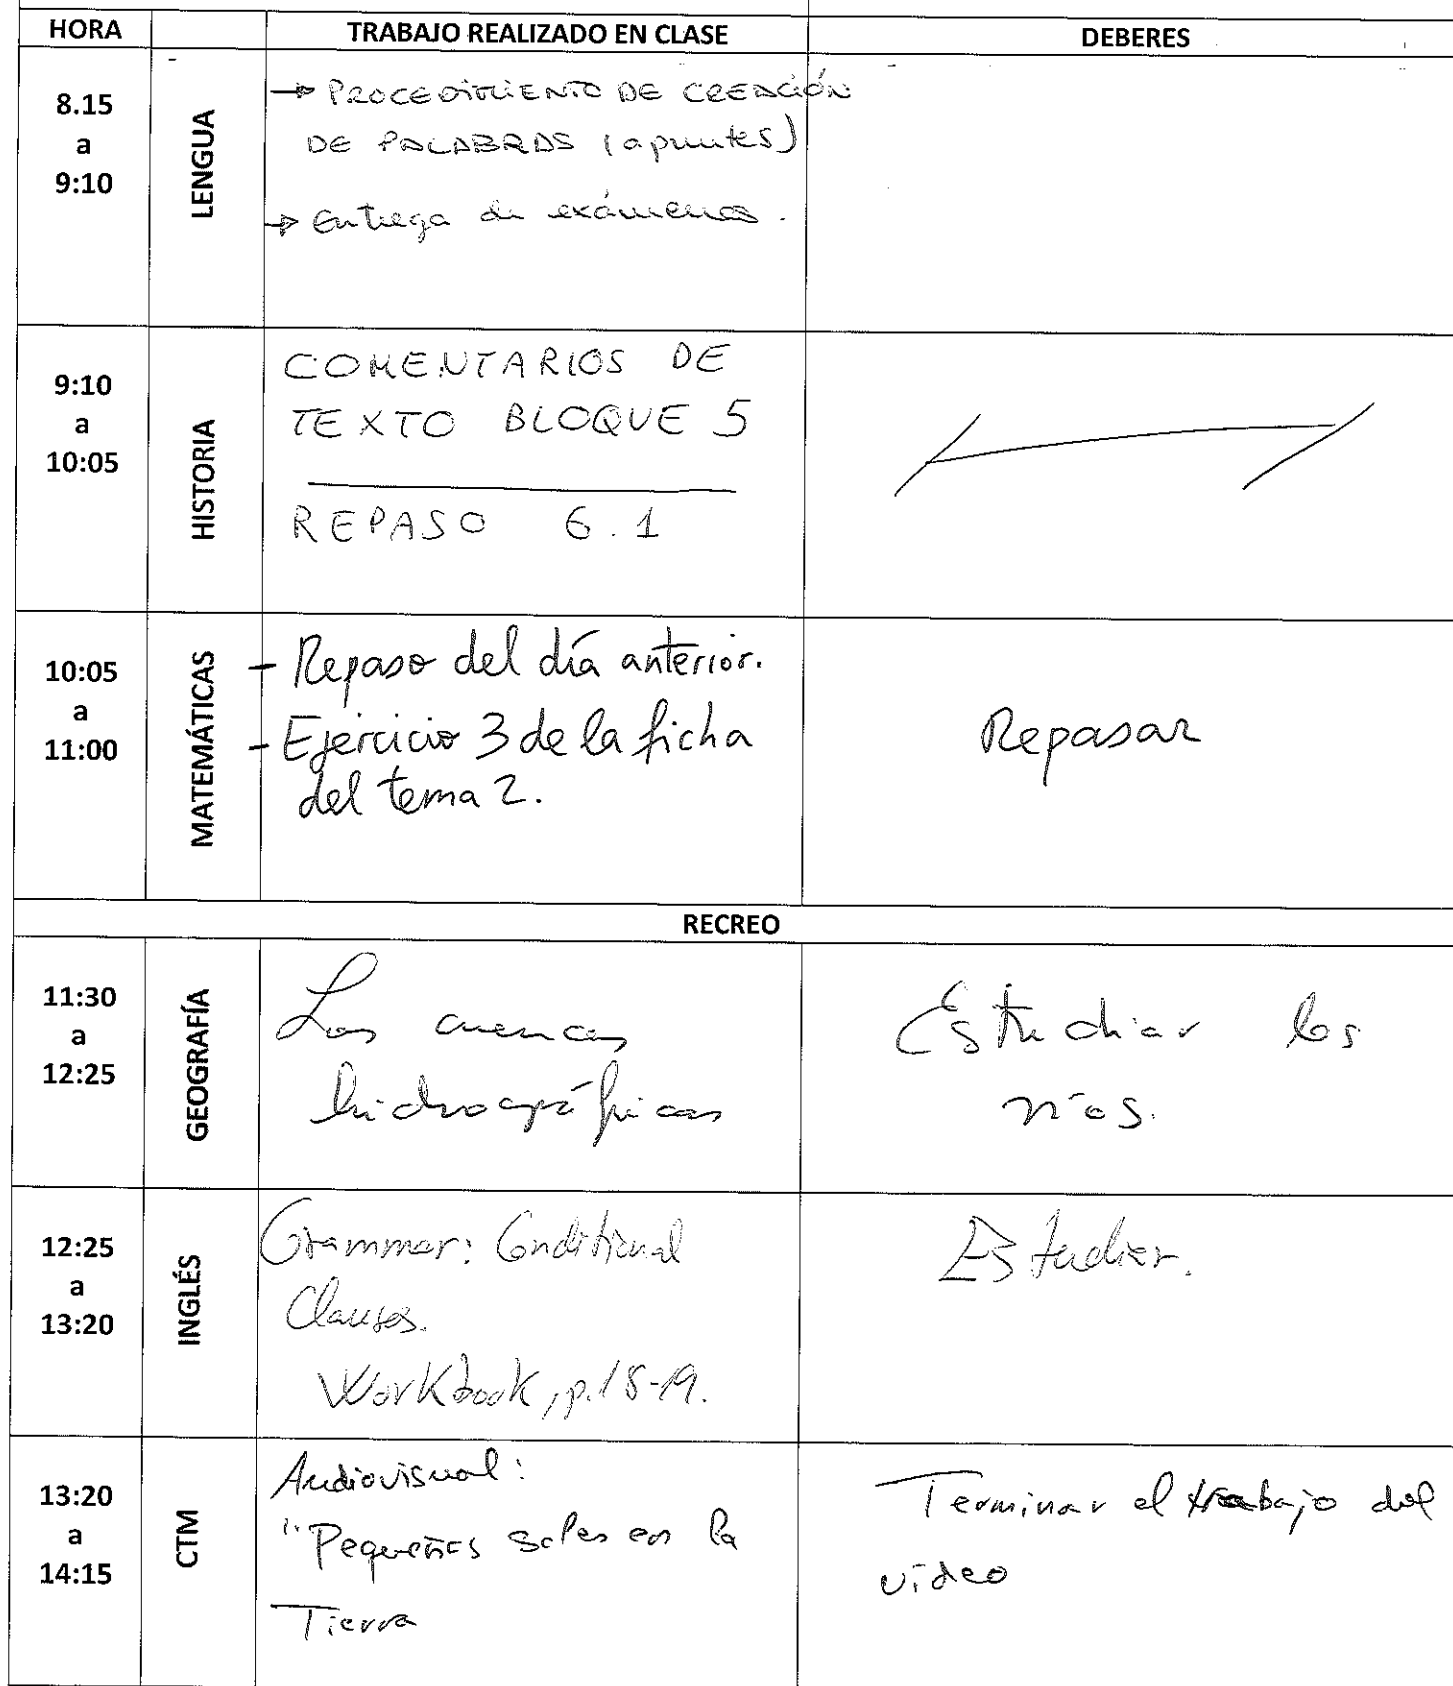 HORA TRABAJO REALIZADO EN CLASE DEBERES
8.15 a 9:10
LENGUA
→ PROCEDIMIENTO DE CREACIÓN
DE PALABRAS (apuntes)
→ Entrega de exámenes.
9:10 a 10:05
HISTORIA
COMENTARIOS DE
TEXTO BLOQUE 5
REPASO 6.1
10:05 a 11:00
MATEMÁTICAS
- Repaso del día anterior.
- Ejercicio 3 de la ficha
del tema 2.
Repasar
RECREO
11:30 a 12:25
GEOGRAFÍA
Las cuencas
hidrográficas
Estudiar los
ríos.
12:25 a 13:20
INGLÉS
Grammar: Conditional
Clauses.
Workbook, p.18-19.
Estudiar.
13:20 a 14:15
CTM
Audiovisual:
"Pequeños soles en la
Tierra
Terminar el trabajo del
vídeo